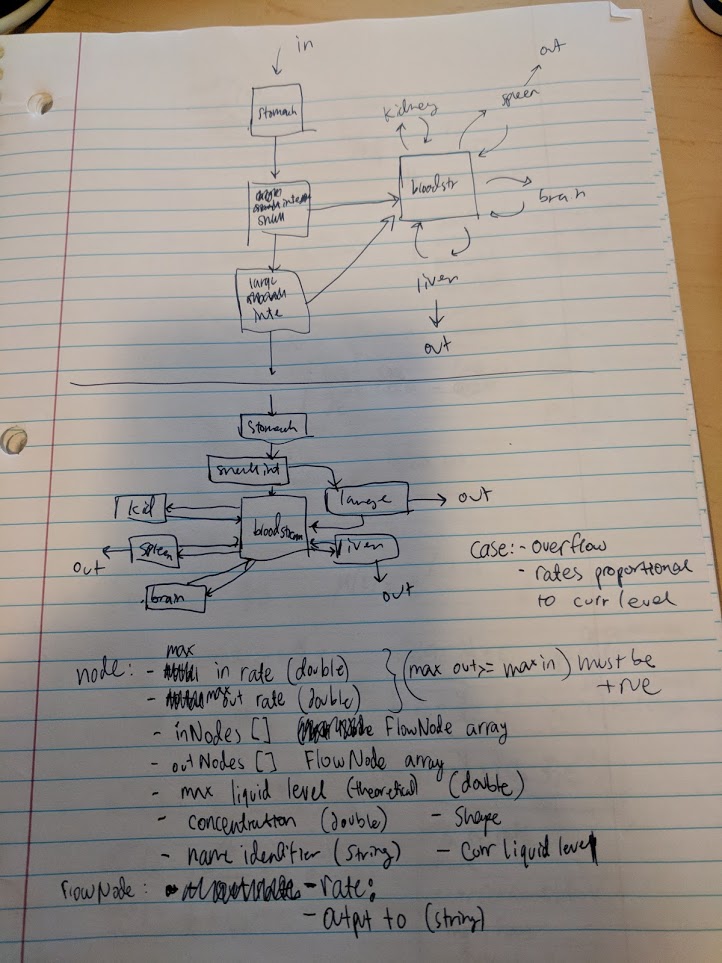 in
out
stomach
kidney
spleen
bloodstr
small
brain
large
inte
liver
out
stomach
small int
large
out
kid
bloodstream
spleen
liver
out
out
brain
case: - overflow
- rates proportional
to curr level
max
node: - in rate (double)
(max out >= max in) must be
true
- max out rate (double)
- inNodes [] FlowNode array
- outNodes [] FlowNode array
- max liquid level (theoretical) (double)
- concentration (double) - Shape
- name identifier (String) - Curr liquid level
FlowNode: - rate;
- output to (string)